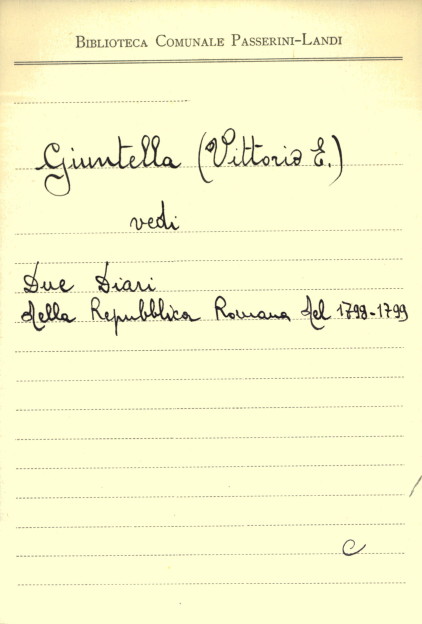 Biblioteca Comunale Passerini-Landi
Giuntella (Vittorio E.)
vedi
Due Diari
della Repubblica Romana del 1798-1799
C